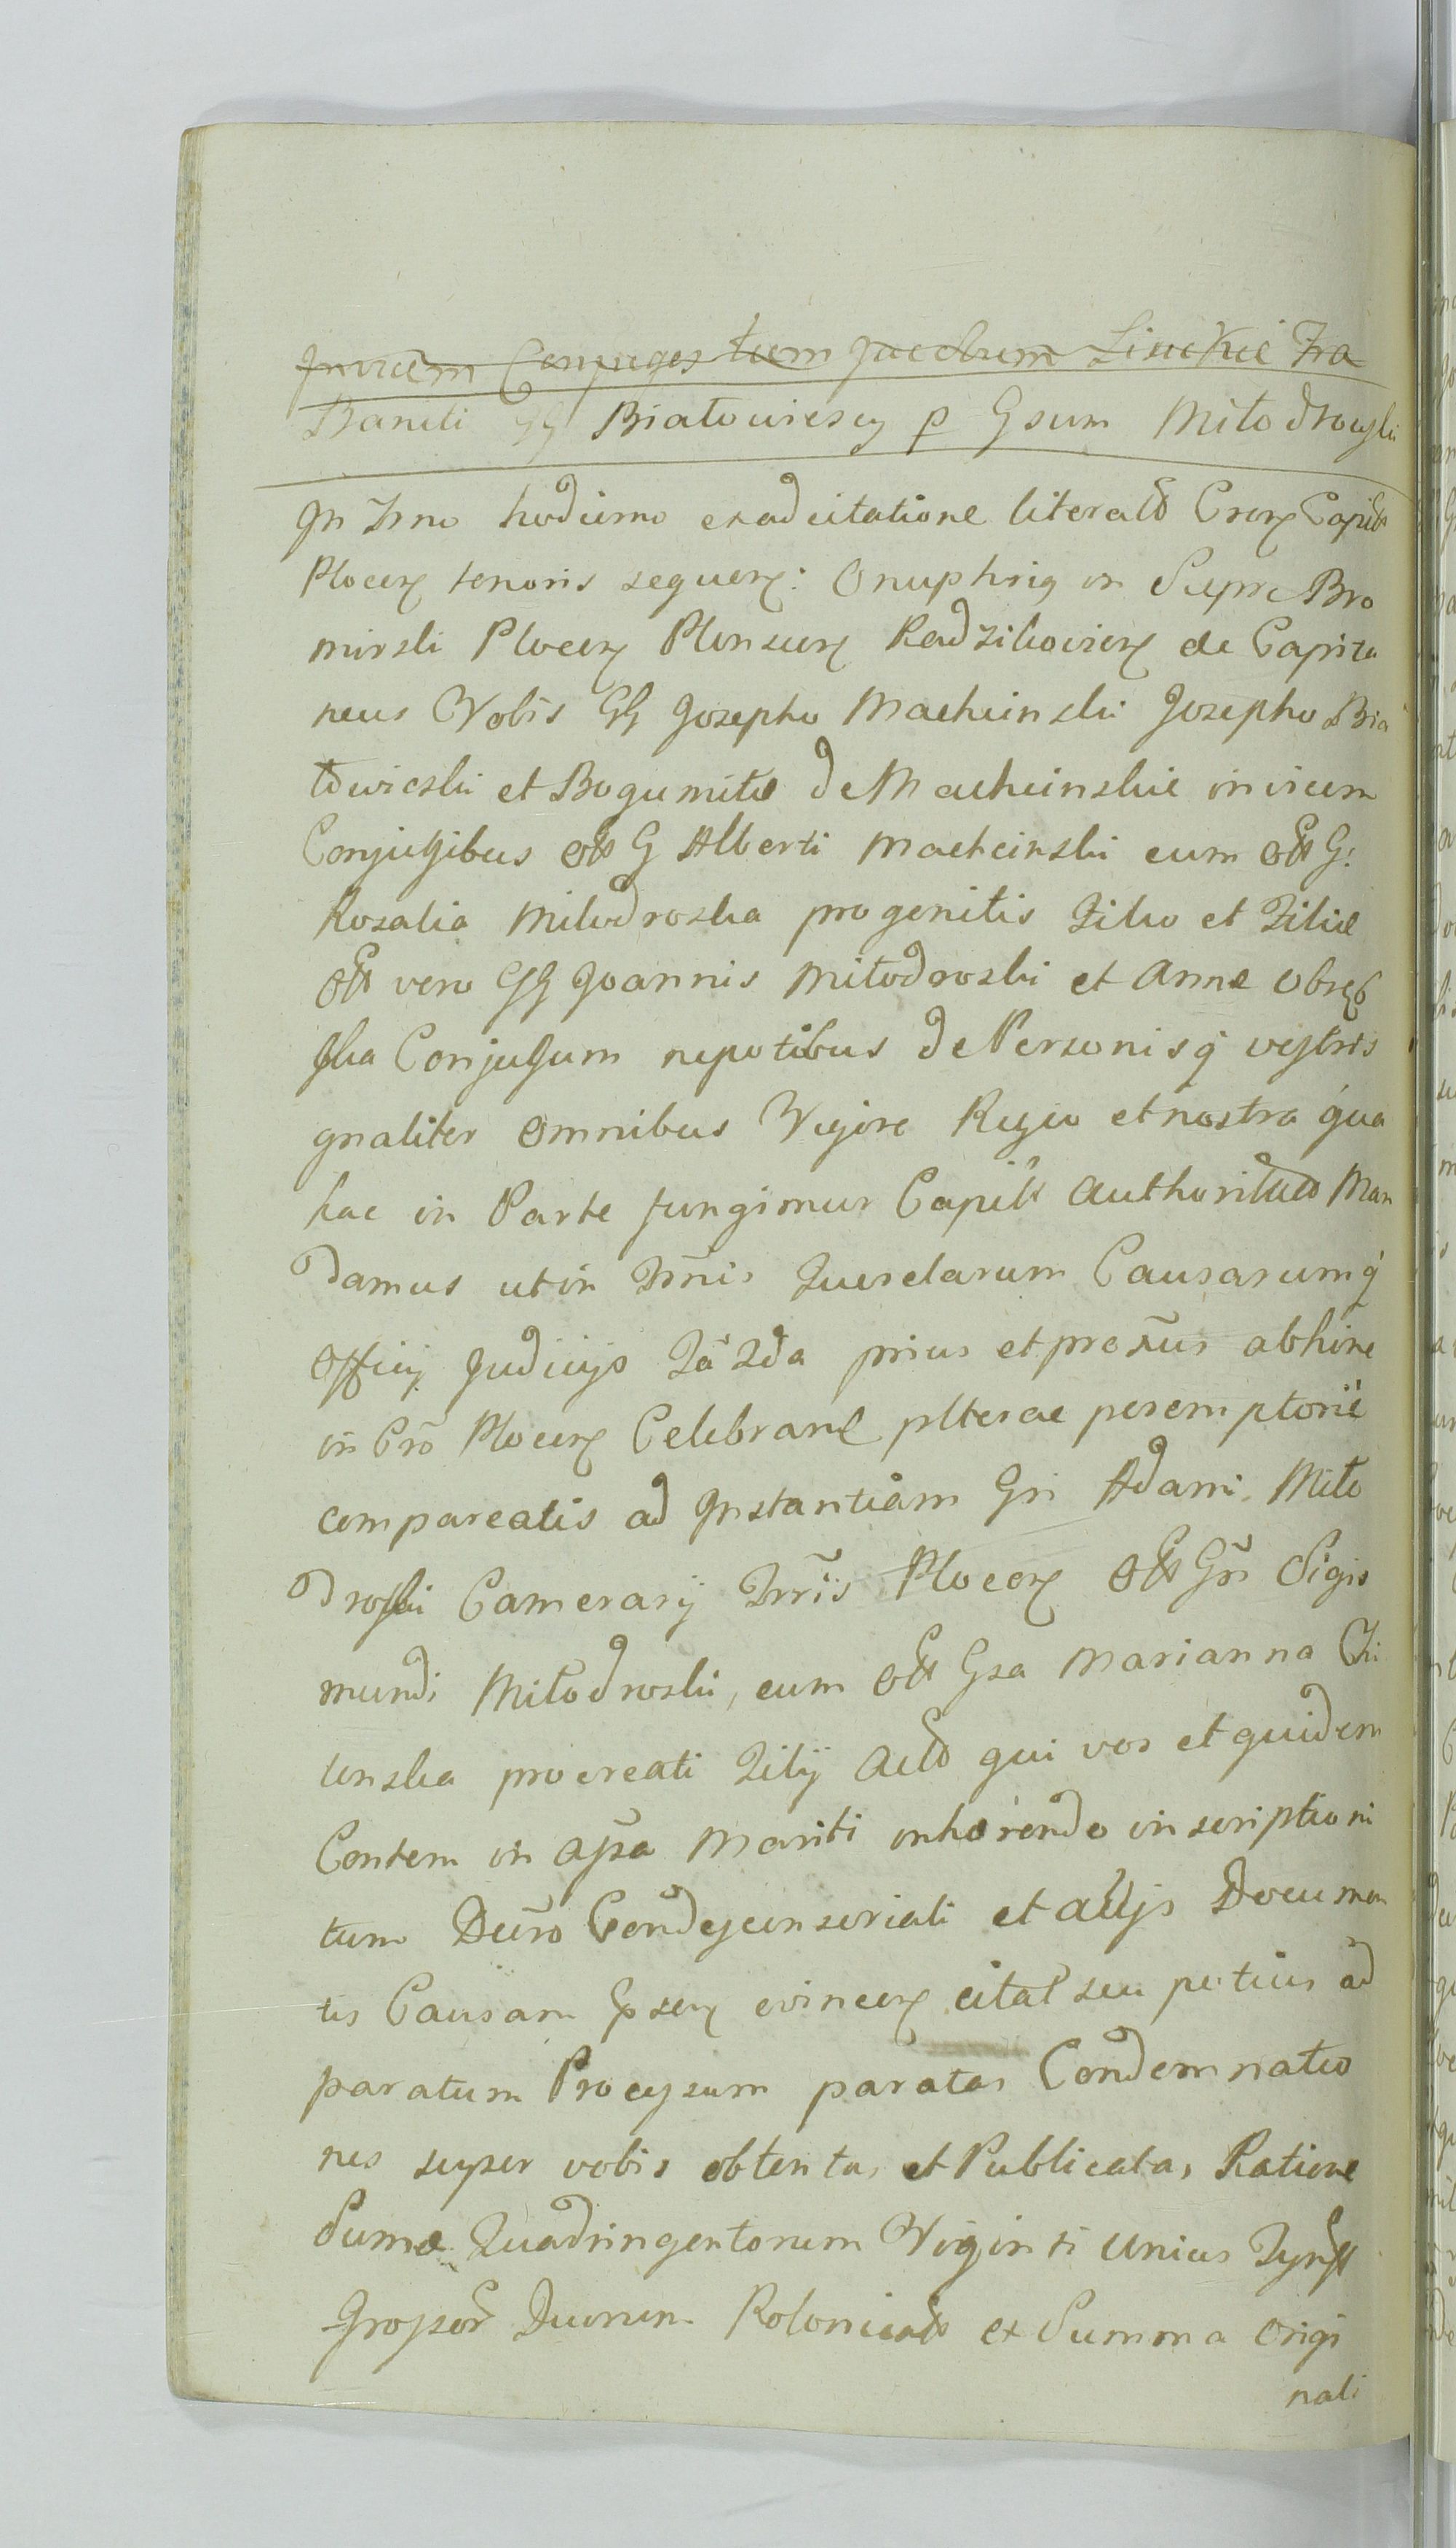 Invicem Conjuges tum Jacobum Linckie Fra
Baniti GG Białowiescy p Gsum Miłodrowski
In Trno hodierno ex ad citatione literali Cren Capit
Plocen tenoris sequen: Onuphrig in Siepre Bro
mirski Plocen Plonscen Radzikovien de Capita
neus Vobis GG Josepho Machcinski Josepho Bia
łowieski et Bogumiłæ de Machcinskie invicem
Conjugibus olt G Alberti Machcinski cum olt G:
Rosalia Milodroska progenitis Filio et Filiæ
olt vero GG Joannis Miłodroski et Annæ Obręb
ska Conjugum nepotibus de Personisq vestris
gnaliter omnibus Vigore Regio et nostra qua
hac in Parte fungimur Capit authoritate Man
damus ut in Trnis Querelarum Causarumq
Officij Judicijs Fa 2da prius et proxius abhinc
in Cro Plocen Celebran plterae peremptorie
compareatis ad Instantiam Gn Adami Miło
droski Camerarij Trris Plocen olt Gn Sigis
mundi Miłodroski, cum olt Gsa Marianna Chi
linska procreati Filij act qui vos et quidem
Contem in assa Mariti inhærendo inscriptioni
tum Duro Condescensoriali et alijs Documen
tis Causam Ipsen evincen citat seu potius ad
paratum Processum paratas Condemnatio
nes super vobis obtentas et Publicatas Ratione
Sumæ Quadringentorum Viginti Unius Tynf
Grossor Duorum Polonicalt ex Summa Origi
nali